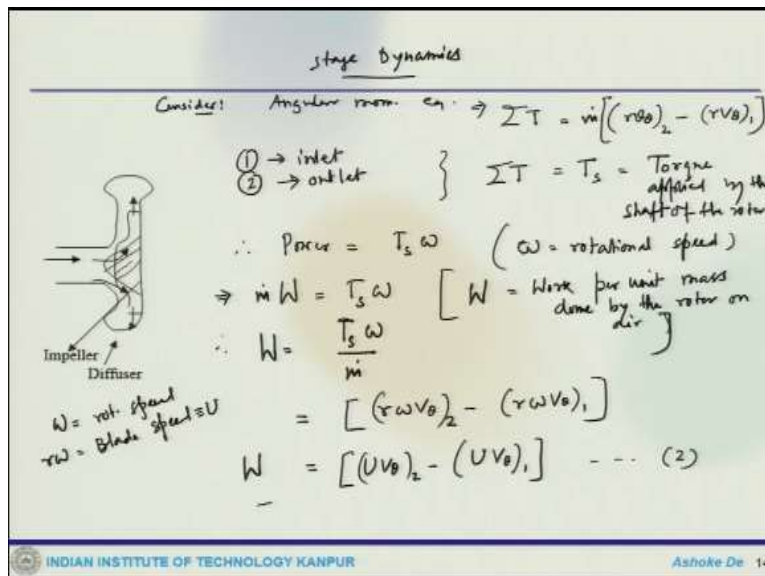 Stage Dynamics
Consider: Angular mom. eq. ⇒ ΣT = ṁ[(rVθ)₂ - (rVθ)₁]
① → inlet
② → outlet
} ΣT = Tₛ = Torque
applied by the
shaft of the rotor
∴ Power = Tₛ ω (ω = rotational speed)
⇒ ṁ W = Tₛ ω [W = Work per unit mass
done by the rotor on
air]
∴ W = Tₛ ω / ṁ
Impeller
Diffuser
ω = rot. speed
rω = Blade speed ≡ U
= [(rωVθ)₂ - (rωVθ)₁]
W = [(UVθ)₂ - (UVθ)₁] --- (2)
INDIAN INSTITUTE OF TECHNOLOGY KANPUR
Ashoke De 14